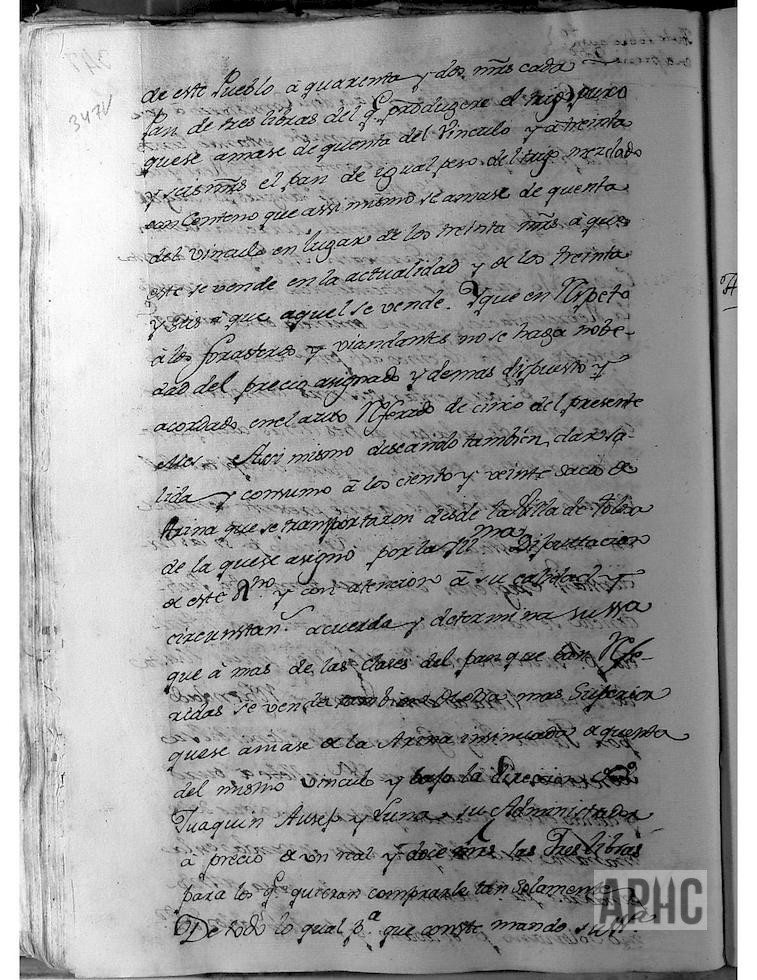 347v
de este Pueblo à quarenta y dos mrs cada
Pan de tres libras del q.e produgere el trigo puro
quese amase de quenta del Vinculo y à treinta
y seis mrs el pan de igual peso del trigo mezclado
con Centeno que assi mismo se amase de quenta
del vinculo en lugar de los treinta mrs à que
este se vende en la actualidad y de los treinta
y seis à que aquel se vende. Yque en Rspeto
à los forasteros y viandantes no se haga nobe-
dad del precio asignado y demas dispuesto y
acordado en el auto Rferido de cinco del presente
Mes Assi mismo deseando tambien dar sa-
lida y consumo à los ciento y veinte sacos de
Arina que se transportaron desde la Villa de
de la quese asignó por la Ill.ma Diputtacion
de este R.no y con atencion à su calidad y
circunstan.s acuerda y determina su ssa
que à mas de las clases del pan que ban Rfe-
ridas se venda tambien de otra mas Superior
quese amase de la Arina insinuada de quenta
del mismo vinculo y bajo la direccion de
Juaquin Ausep y Luna su Administrador
à precio de un real y doce mrs las Tres libras
para los q.e quieran comprarle tan solamente
De todo lo qual p.a que conste mandó su ssa
APHC